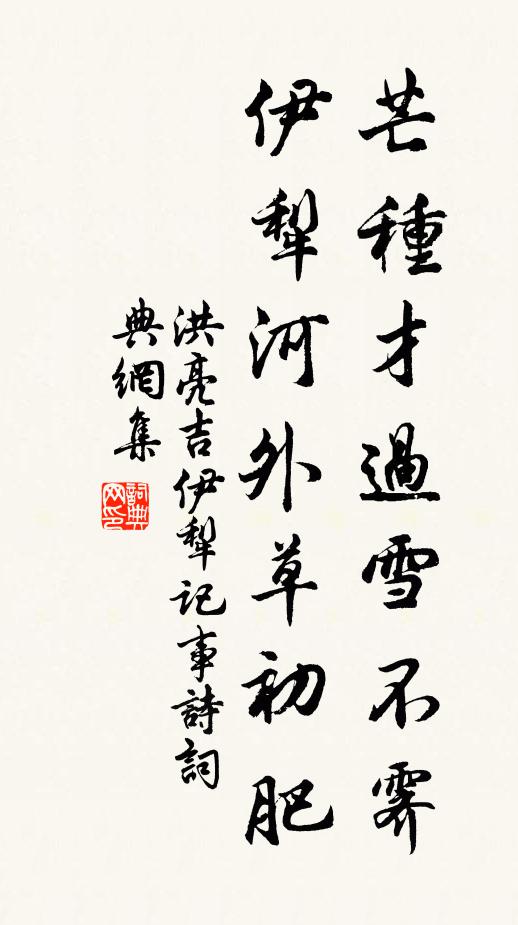 芒種才過雪不霽
伊犁河外草初肥
洪亮吉伊犁記事詩詞
典網集
詞典
网印